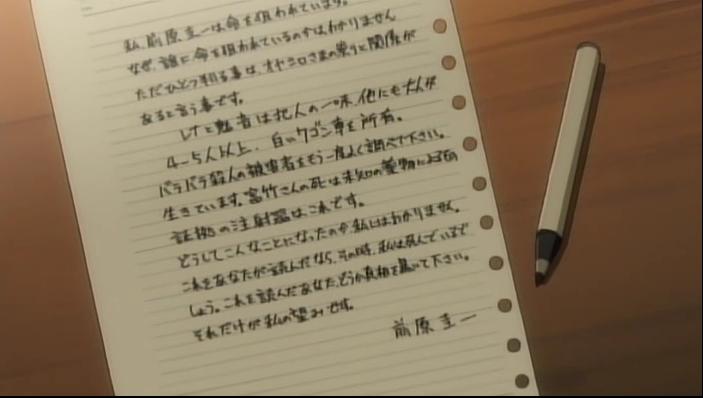 私、前原圭一は命を狙われています。
なぜ、誰に命を狙われているのかはわかりません
ただひとつ判る事は、オヤシロさまの祟りと関係が
あると言う事です。
レナと魅音は犯人の一味。他にも大人が
4~5人以上。白いワゴン車を所有。
バラバラ殺人の被害者をもう一度よく調べて下さい。
生きています。富竹さんの死は未知の薬物によるもの
証拠の注射器はこれです。
どうしてこんなことになったのか私にはわかりません。
これをあなたが読んだなら、その時、私は死んでいるで
しょう。これを読んだあなた、どうか真相を暴いて下さい。
それだけが私の望みです。
前原圭一